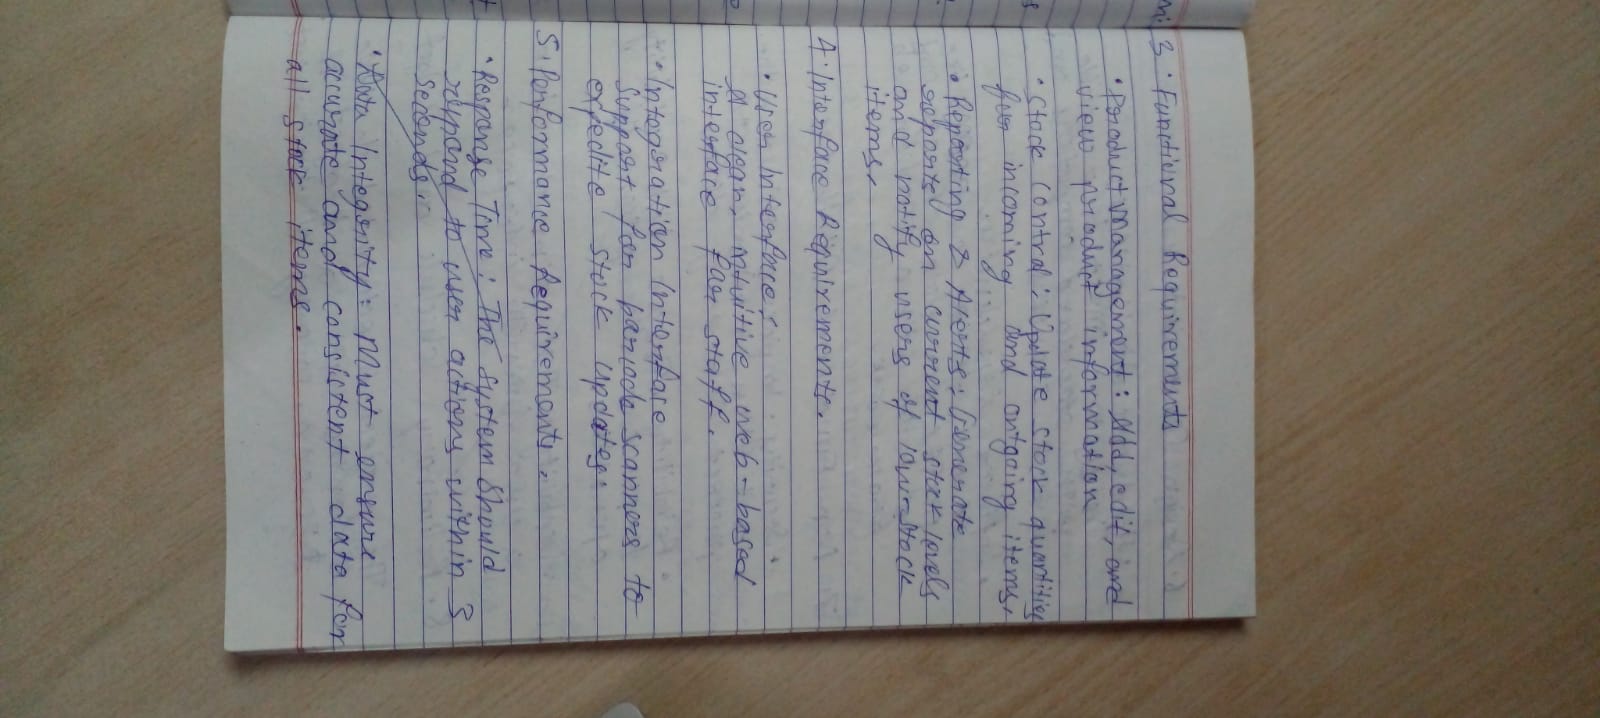 3. Functional Requirements
• Product management: Add, edit, and
view product information
• Stock control: Update stock quantities
for incoming and outgoing items.
• Reporting & Alerts: Generate
reports on current stock levels
and notify users of low-stock
items.
4. Interface Requirements.
• User Interface:
A clean, intuitive web-based
interface for staff.
• Integration Interface
Support for barcode scanners to
expedite stock updates.
5. Performance Requirements.
• Response Time: The system should
respond to user actions within 3
seconds.
• Data Integrity: Must ensure
accurate and consistent data for
all stock items.